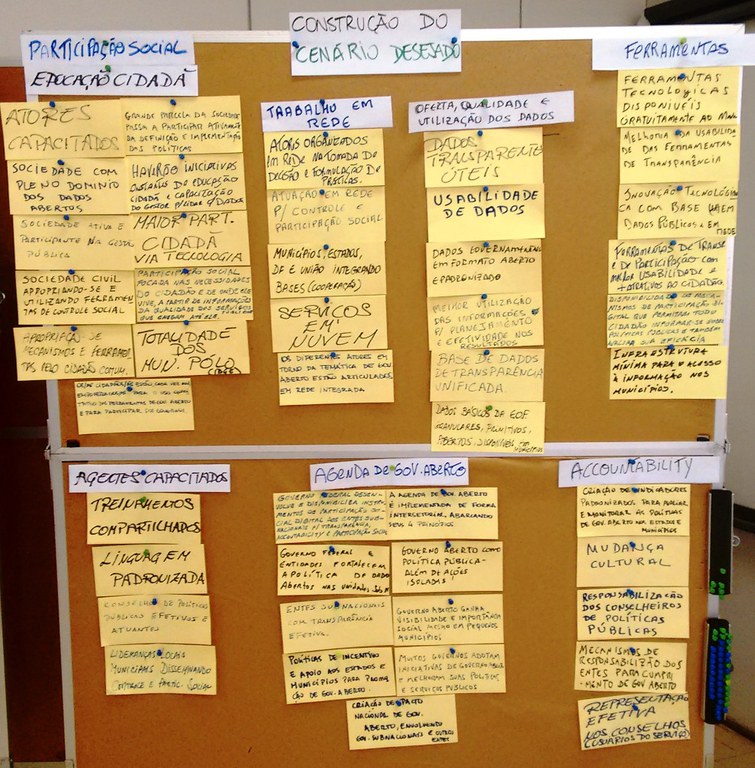 CONSTRUÇÃO DO
CENÁRIO DESEJADO
PARTICIPAÇÃO SOCIAL
EDUCAÇÃO CIDADÃ
ATORES
CAPACITADOS
SOCIEDADE COM
PLENO DOMINIO
DOS DADOS
ABERTOS
SOCIEDADE ATIVA E
PARTICIPANTE NA GESTÃO
PÚBLICA
SOCIEDADE CIVIL
APROPRIANDO-SE E
UTILIZANDO FERRAMEN
TAS DE CONTROLE SOCIAL
APROPRIAÇÃO DE
MECANISMOS E FERRAMEN
TAS PELO CIDADÃO COMUM.
GRANDE PARCELA DA SOCIEDADE
PASSA A PARTICIPAR ATIVAMENTE
DA DEFINIÇÃO E IMPLEMENTAÇÃO
DAS POLÍTICAS
HAVERÃO INICIATIVAS
DE EDUCAÇÃO
CIDADÃ E CAPACITAÇÃO
DO GESTOR P/ LIDAR C/ DADOS
MAIOR PART.
CIDADÃ
VIA TECNOLOGIA
PARTICIPAÇÃO SOCIAL
FOCADA NAS NECESSIDADES
DO CIDADÃO E DE ONDE ELE
VIVE, A PARTIR DA INFORMAÇÃO
DA QUALIDADE DOS SERVIÇOS
QUE CHEGAM ATÉ ELE
TOTALIDADE
DOS
MUN. PÓLO
(IBGE)
TRABALHO EM
REDE
ATORES ORGANIZADOS
EM REDE NA TOMADA DE
DECISÃO E FORMULAÇÃO DE
PRÁTICAS.
ATUAÇÃO EM REDE
P/ CONTROLE E
PARTICIPAÇÃO SOCIAL
MUNICÍPIOS, ESTADOS,
DF E UNIÃO INTEGRANDO
BASES (COOPERAÇÃO)
SERVIÇOS
EM
NUVEM
OS DIFERENTES ATORES EM
TORNO DA TEMÁTICA DE GOV
ABERTO ESTÃO ARTICULADOS
EM REDE INTEGRADA
OFERTA, QUALIDADE E
UTILIZAÇÃO DOS DADOS
DADOS
TRANSPARENTES
ÚTEIS
USABILIDADE
DE DADOS
DADOS GOVERNAMENTAIS
EM FORMATO ABERTO
E PADRONIZADO
MELHOR UTILIZAÇÃO
DAS INFORMAÇÕES
P/ PLANEJAMENTO
E EFETIVIDADE NOS
RESULTADOS
BASE DE DADOS
DE TRANSPARÊNCIA
UNIFICADA.
DADOS BÁSICOS DA EOF
GRANULARES, PRIMITIVOS,
ABERTOS,
FERRAMENTAS
FERRAMENTAS
TECNOLOGICAS
DISPONÍVEIS
GRATUITAMENTE AO
MELHORIA DA USABILIDA
DE DAS FERRAMENTAS
DE TRANSPARÊNCIA
INOVAÇÃO TECNOLÓGI
CA COM BASE EM
DADOS PÚBLICOS E EM
REDE
FERRAMENTAS DE TRANSP.
E DE PARTICIPAÇÃO COM
MELHOR USABILIDADE E
+ ATRATIVAS AO CIDADÃO.
DISPONIBILIZAÇÃO DE MECA
NISMOS DE PARTICIPAÇÃO DI
GITAL QUE PERMITAM TODO
CIDADÃO INFORMAR-SE SOBRE
POLÍTICAS PÚBLICAS E TAMBÉM
AVALIAR SUA EFICIÊNCIA
INFRAESTRUTURA
MÍNIMA PARA O ACESSO
À INFORMAÇÃO NOS
MUNICÍPIOS.
AGENTES CAPACITADOS
TREINAMENTOS
COMPARTILHADOS
LINGUAGEM
PADRONIZADA
CONSELHO DE POLÍTICAS
PÚBLICAS EFETIVOS E
ATUANTES
LIDERANÇAS LOCAIS
MUNICIPAIS DISSEMINANDO
CONTROLE E PARTIC. SOCIAL
AGENDA DE GOV. ABERTO
GOVERNO FEDERAL DESEN
VOLVE E DISPONIBILIZA INSTRU
MENTOS DE PARTICIPAÇÃO SO
CIAL DIGITAL AOS ENTES SUB-
NACIONAIS P/ TRANSPARÊNCIA,
ACCOUNTABILITY E PARTICIPAÇÃO SOCIAL
GOVERNO FEDERAL E
ENTIDADES FORTALECEM
A POLÍTICA DE DADOS
ABERTOS NAS UNIDADES
ENTES SUBNACIONAIS
COM TRANSPARÊNCIA
EFETIVA.
POLÍTICAS DE INCENTIVO
E APOIO AOS ESTADOS E
MUNICÍPIOS PARA PROMO
ÇÃO DE GOV. ABERTO.
A AGENDA DE GOV. ABERTO
É IMPLEMENTADA DE FORMA
INTERSETORIAL, ABARCANDO
SEUS 4 PRINCÍPIOS
GOVERNO ABERTO COMO
POLÍTICA PÚBLICA -
ALÉM DE AÇÕES
ISOLADAS
GOVERNO ABERTO GANHA
VISIBILIDADE E IMPORTÂNCIA
SOCIAL MESMO EM PEQUENOS
MUNICÍPIOS
MUITOS GOVERNOS ADOTAM
INICIATIVAS DE GOVERNO ABERTO
E MELHORAM SUAS POLÍTICAS
E SERVIÇOS PÚBLICOS
CRIAÇÃO DE PACTO
NACIONAL DE GOV.
ABERTO, ENVOLVENDO
GOV. SUBNACIONAIS E OUTROS
ENTES
ACCOUNTABILITY
CRIAÇÃO DE INDICADORES
PADRONIZADOS PARA AVALIAR
E MONITORAR AS POLÍTICAS
DE GOV ABERTO NOS ESTADOS E
MUNICÍPIOS
MUDANÇA
CULTURAL
RESPONSABILIZAÇÃO
DOS CONSELHEIROS
DE POLÍTICAS
PÚBLICAS
MECANISMOS DE
RESPONSABILIZAÇÃO DOS
ENTES PARA CUMPRI
MENTO DE GOV ABERTO
REPRESENTAÇÃO
EFETIVA
NOS CONSELHOS
(USUÁRIOS DO SERVIÇO)